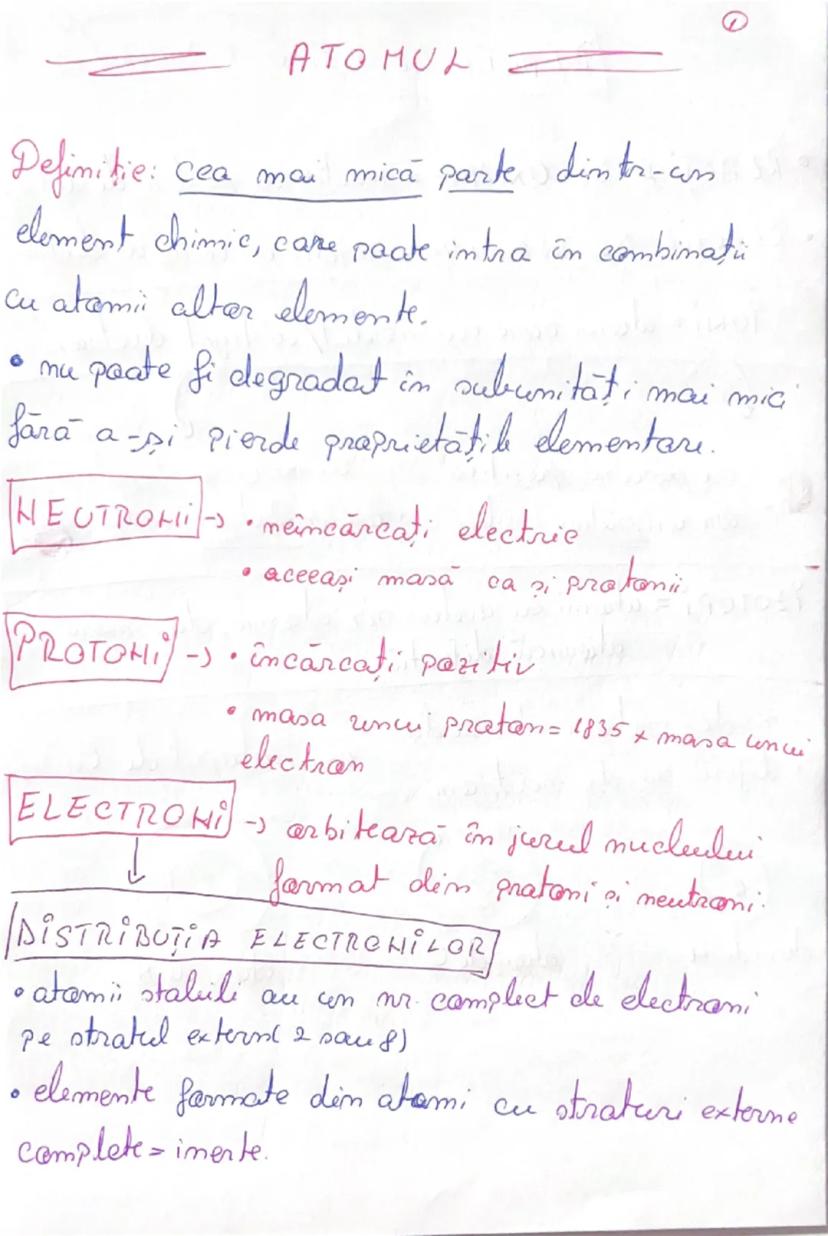 1
ATOMUL
Definiție: cea mai mică parte dintr-un
element chimic, care poate intra în combinații
cu atomii altor elemente.
• nu poate fi degradat în subunități mai mici
fără a-și pierde proprietățile elementare.
NEUTRONi -> • neîncărcați electric
• aceeași masă ca și protonii
PROTONi -> • încărcați pozitiv
• masa unui proton = 1835 x masa unui
electron
ELECTRONi -> orbitează în jurul nucleului
format din protoni și neutroni.
DiSTRiBUȚiA ELECTRONiLOR
• atomii stabili au un nr. complect de electroni
pe stratul extern (2 sau 8)
• elemente formate din atomi cu straturi externe
complete = inerte.